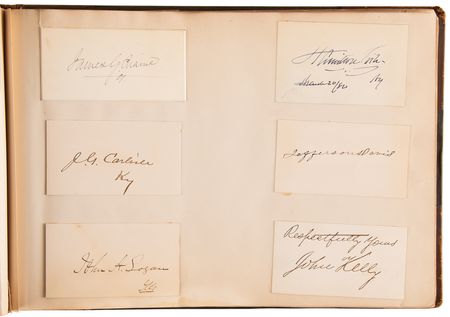 James G Blaine
of
J. G. Carlisle
Ky
John A. Logan
Ills
Ky
Jefferson Davis
Respectfully Yours
John Kelly